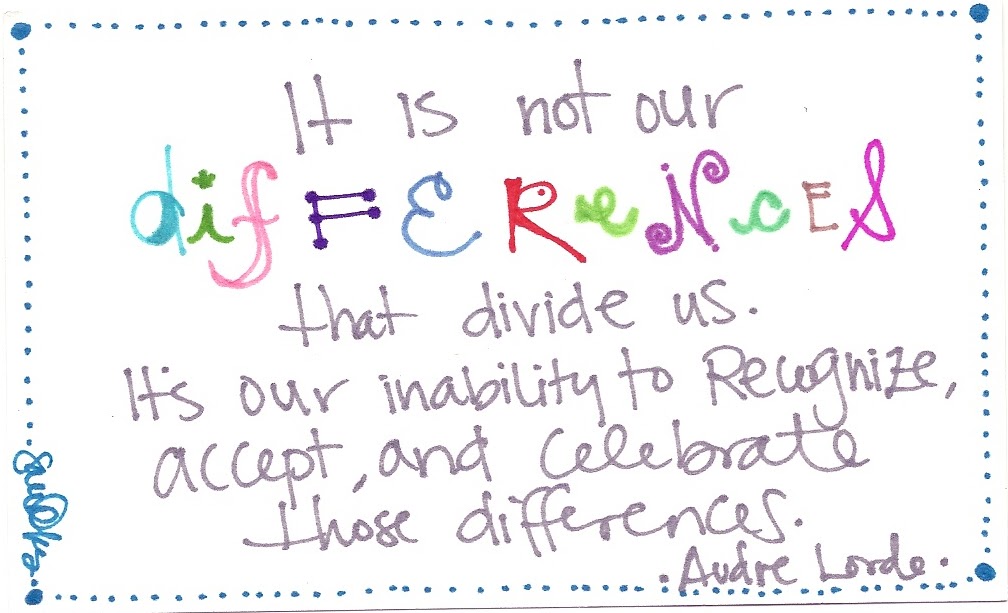 It is not our
difFEReNcES
that divide us.
It's our inability to Recognize,
accept, and celebrate
those differences.
. Audre Lorde .